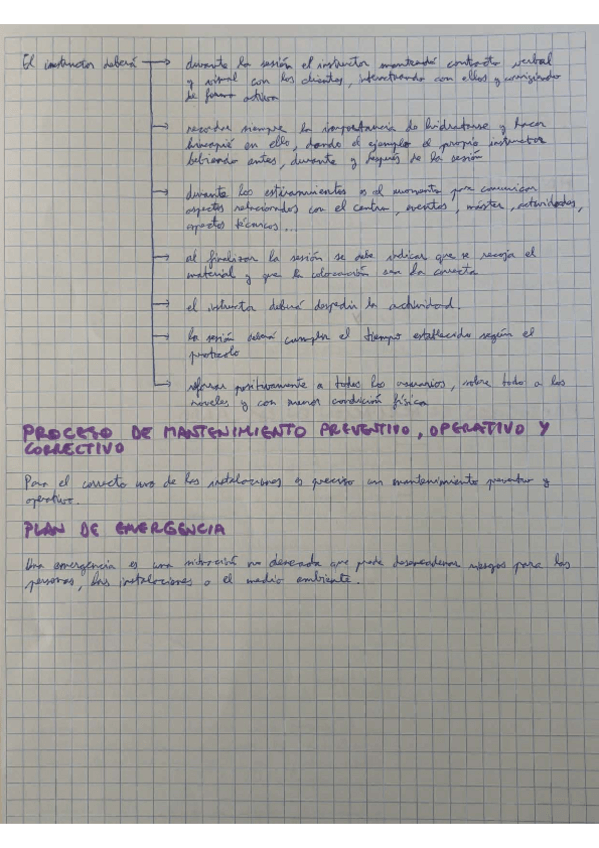 El instructor deberá → durante la sesión el instructor mantendrá contacto verbal
y visual con los clientes, interactuando con ellos y corrigiendo
de forma activa
→ recordar siempre la importancia de hidratarse y hacer
hincapié en ello, dando el ejemplo el propio instructor
bebiendo antes, durante y después de la sesión
→ durante los estiramientos es el momento para comunicar
aspectos relacionados con el centro, eventos, máster, actividades,
aspectos técnicos...
→ al finalizar la sesión se debe indicar que se recoja el
material y que la colocación sea la correcta
→ el instructor deberá despedir la actividad.
→ la sesión deberá cumplir el tiempo establecido según el
protocolo
→ reforzar positivamente a todos los usuarios, sobre todo a los
noveles y con menor condición física
PROCESO DE MANTENIMIENTO PREVENTIVO, OPERATIVO Y
CORRECTIVO
Para el correcto uso de las instalaciones es preciso un mantenimiento preventivo y
operativo.
PLAN DE EMERGENCIA
Una emergencia es una situación no deseada que puede desencadenar riesgos para las
personas, las instalaciones o el medio ambiente.